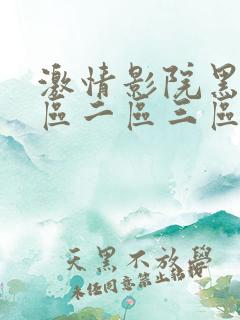 激情影院黑
區二區三區
天黑不放學
未经同意禁止转载